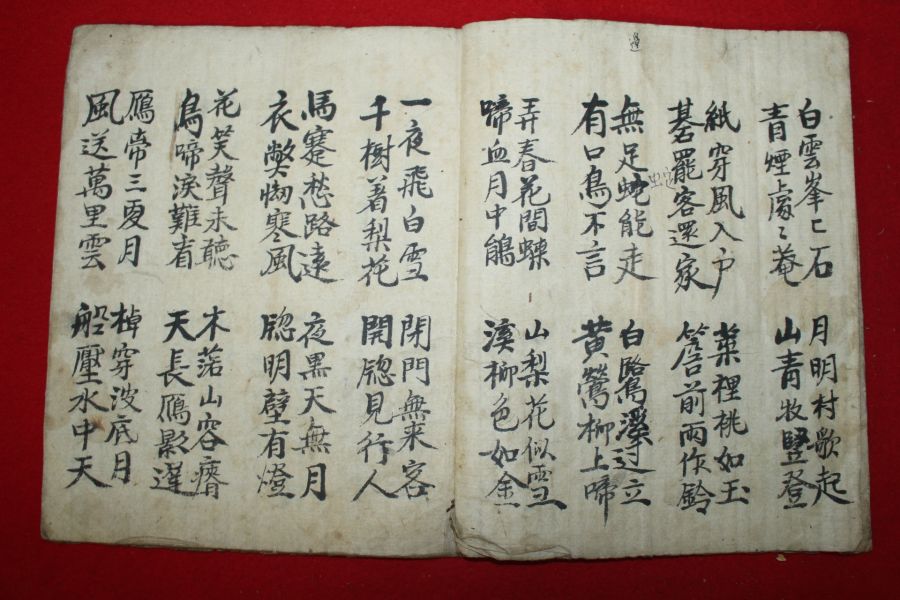 邊
白雲峯〻石
青煙處〻菴
月明村歌起
山青牧豎登
紙穿風入户
碁罷客還家
葉裡桃如玉
簷前雨作鈴
無足蛇能走
有口鳥不言
白鷺溪辺立
黄鶯柳上啼
弄春花間蝶
啼血月中鵑
山梨花似雪
溪柳色如金
一夜飛白雪
千樹着梨花
閉門無来客
開牎見行人
馬蹇愁路遠
衣弊㤼寒風
夜黑天無月
牎明壁有燈
花笑聲未聽
鳥啼淚難看
木落山容瘠
天長鴈影遲
鴈帝三夏月
風送萬里雲
棹穿波底月
船壓水中天